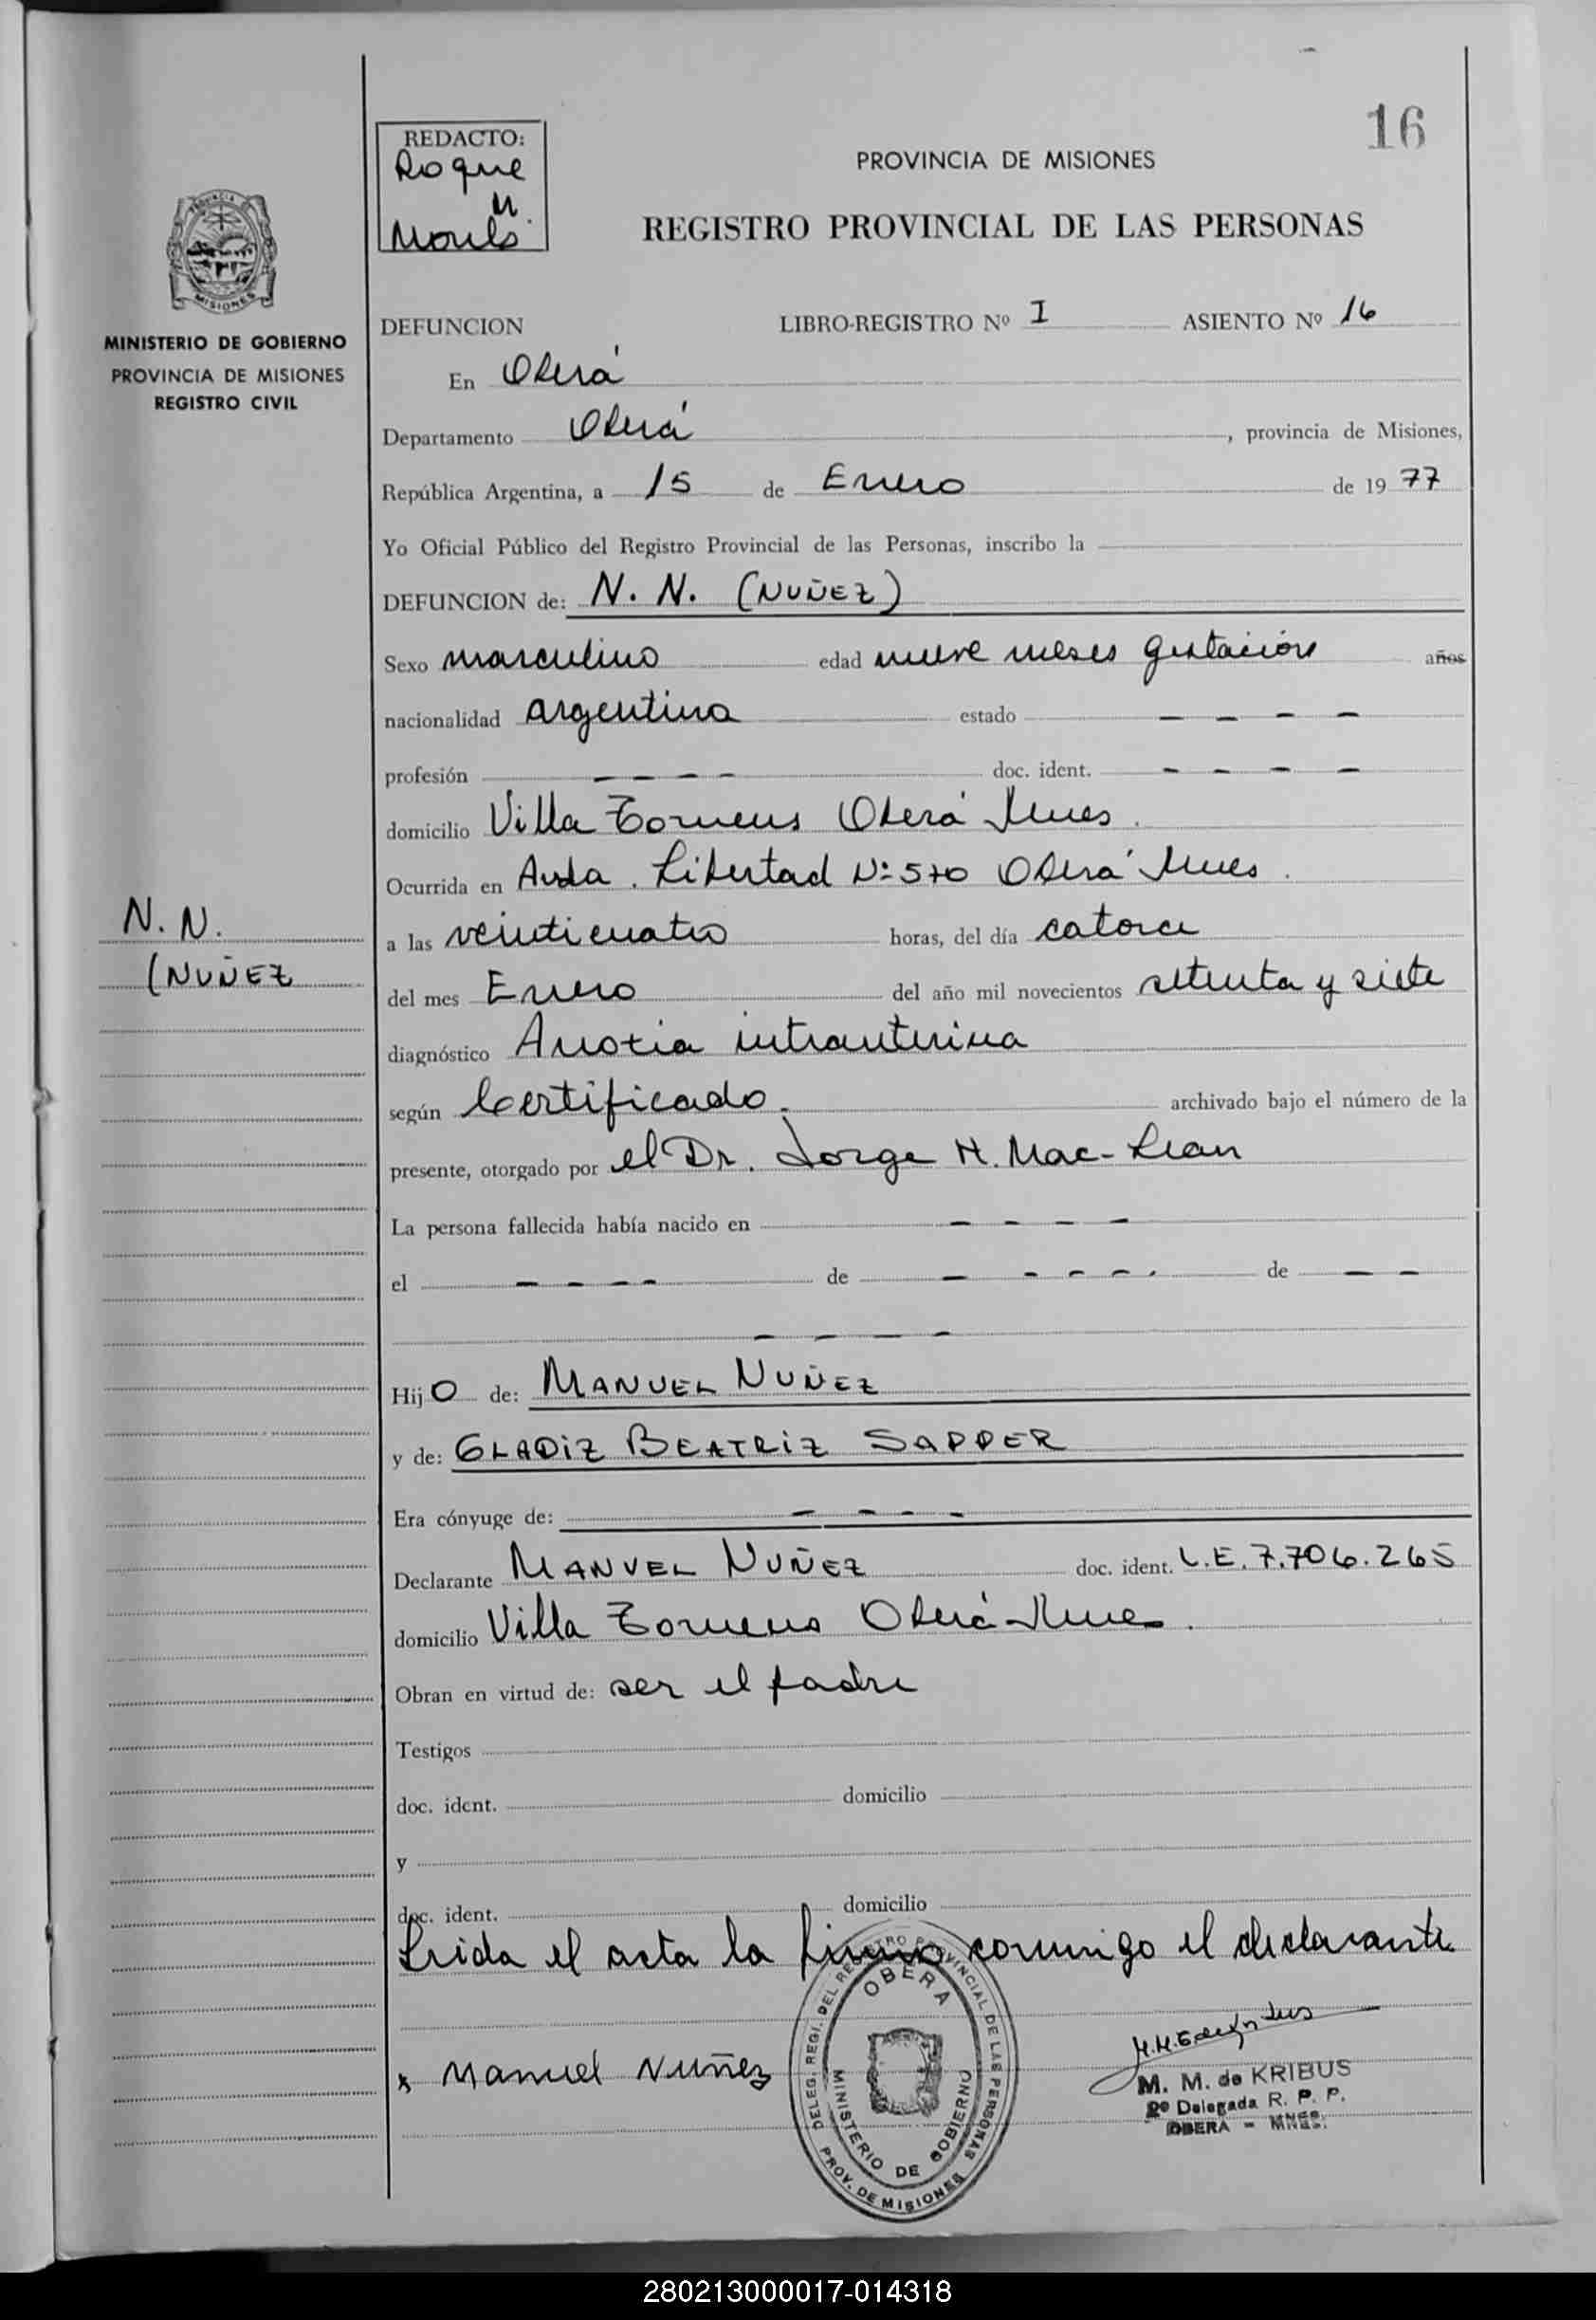 16
REDACTO:
Roque
M.
PROVINCIA DE MISIONES
REGISTRO PROVINCIAL DE LAS PERSONAS
MISIONES
MINISTERIO DE GOBIERNO
PROVINCIA DE MISIONES
REGISTRO CIVIL
DEFUNCION LIBRO-REGISTRO Nº I ASIENTO Nº 16
En Oberá
Departamento Oberá, provincia de Misiones,
República Argentina, a 15 de Enero de 1977
Yo Oficial Público del Registro Provincial de las Personas, inscribo la
DEFUNCION de: N. N. (NUÑEZ)
Sexo masculino edad nueve meses gestación años
nacionalidad argentina estado - - - -
profesión - - - - doc. ident. - - - -
domicilio Villa Oberá Mnes.
Ocurrida en Avda. Libertad Nº 570 Oberá Mnes.
N. N.
(NUÑEZ
a las veinticuatro horas, del día catorce
del mes Enero del año mil novecientos setenta y siete
diagnóstico Anoxia intrauterina
según Certificado. archivado bajo el número de la
presente, otorgado por el Dr. Jorge H. Mac-Lean
La persona fallecida había nacido en - - - -
el - - - - de - - - - de - -
- - - -
Hijo de: MANUEL NUÑEZ
y de: GLADIZ BEATRIZ SAPPER
Era cónyuge de: - - - -
Declarante MANUEL NUÑEZ doc. ident. L.E. 7.706.265
domicilio Villa Oberá Mnes.
Obran en virtud de: ser el padre
Testigos
doc. ident. domicilio
y
doc. ident. domicilio
Leida el acta la firma conmigo el declarante
x Manuel Nuñez
DELEG. REGI. DEL REGISTRO PROVINCIAL DE LAS PERSONAS
PROV. DE MISIONES
OBERA
MINISTERIO DE GOBIERNO
M. M. de KRIBUS
2º Delegada R. P. P.
OBERA - MNES.
280213000017-014318